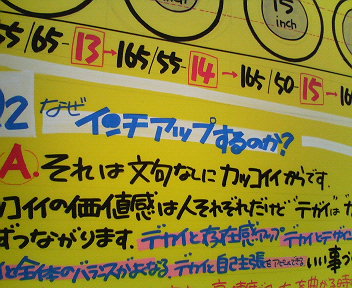 15
inch
55/65-13→165/55-14→165/50-15→16
2 なぜインチアップするのか?
A. それは文句なしにカッコイイからです。
ッコイイの価値感は人それぞれだけど デカイは
ずっつながります. デカイと存在感アップ デカイとデカ
と全体のバランスがよくなる. デカイと自己主張をアピールできる いい事づ